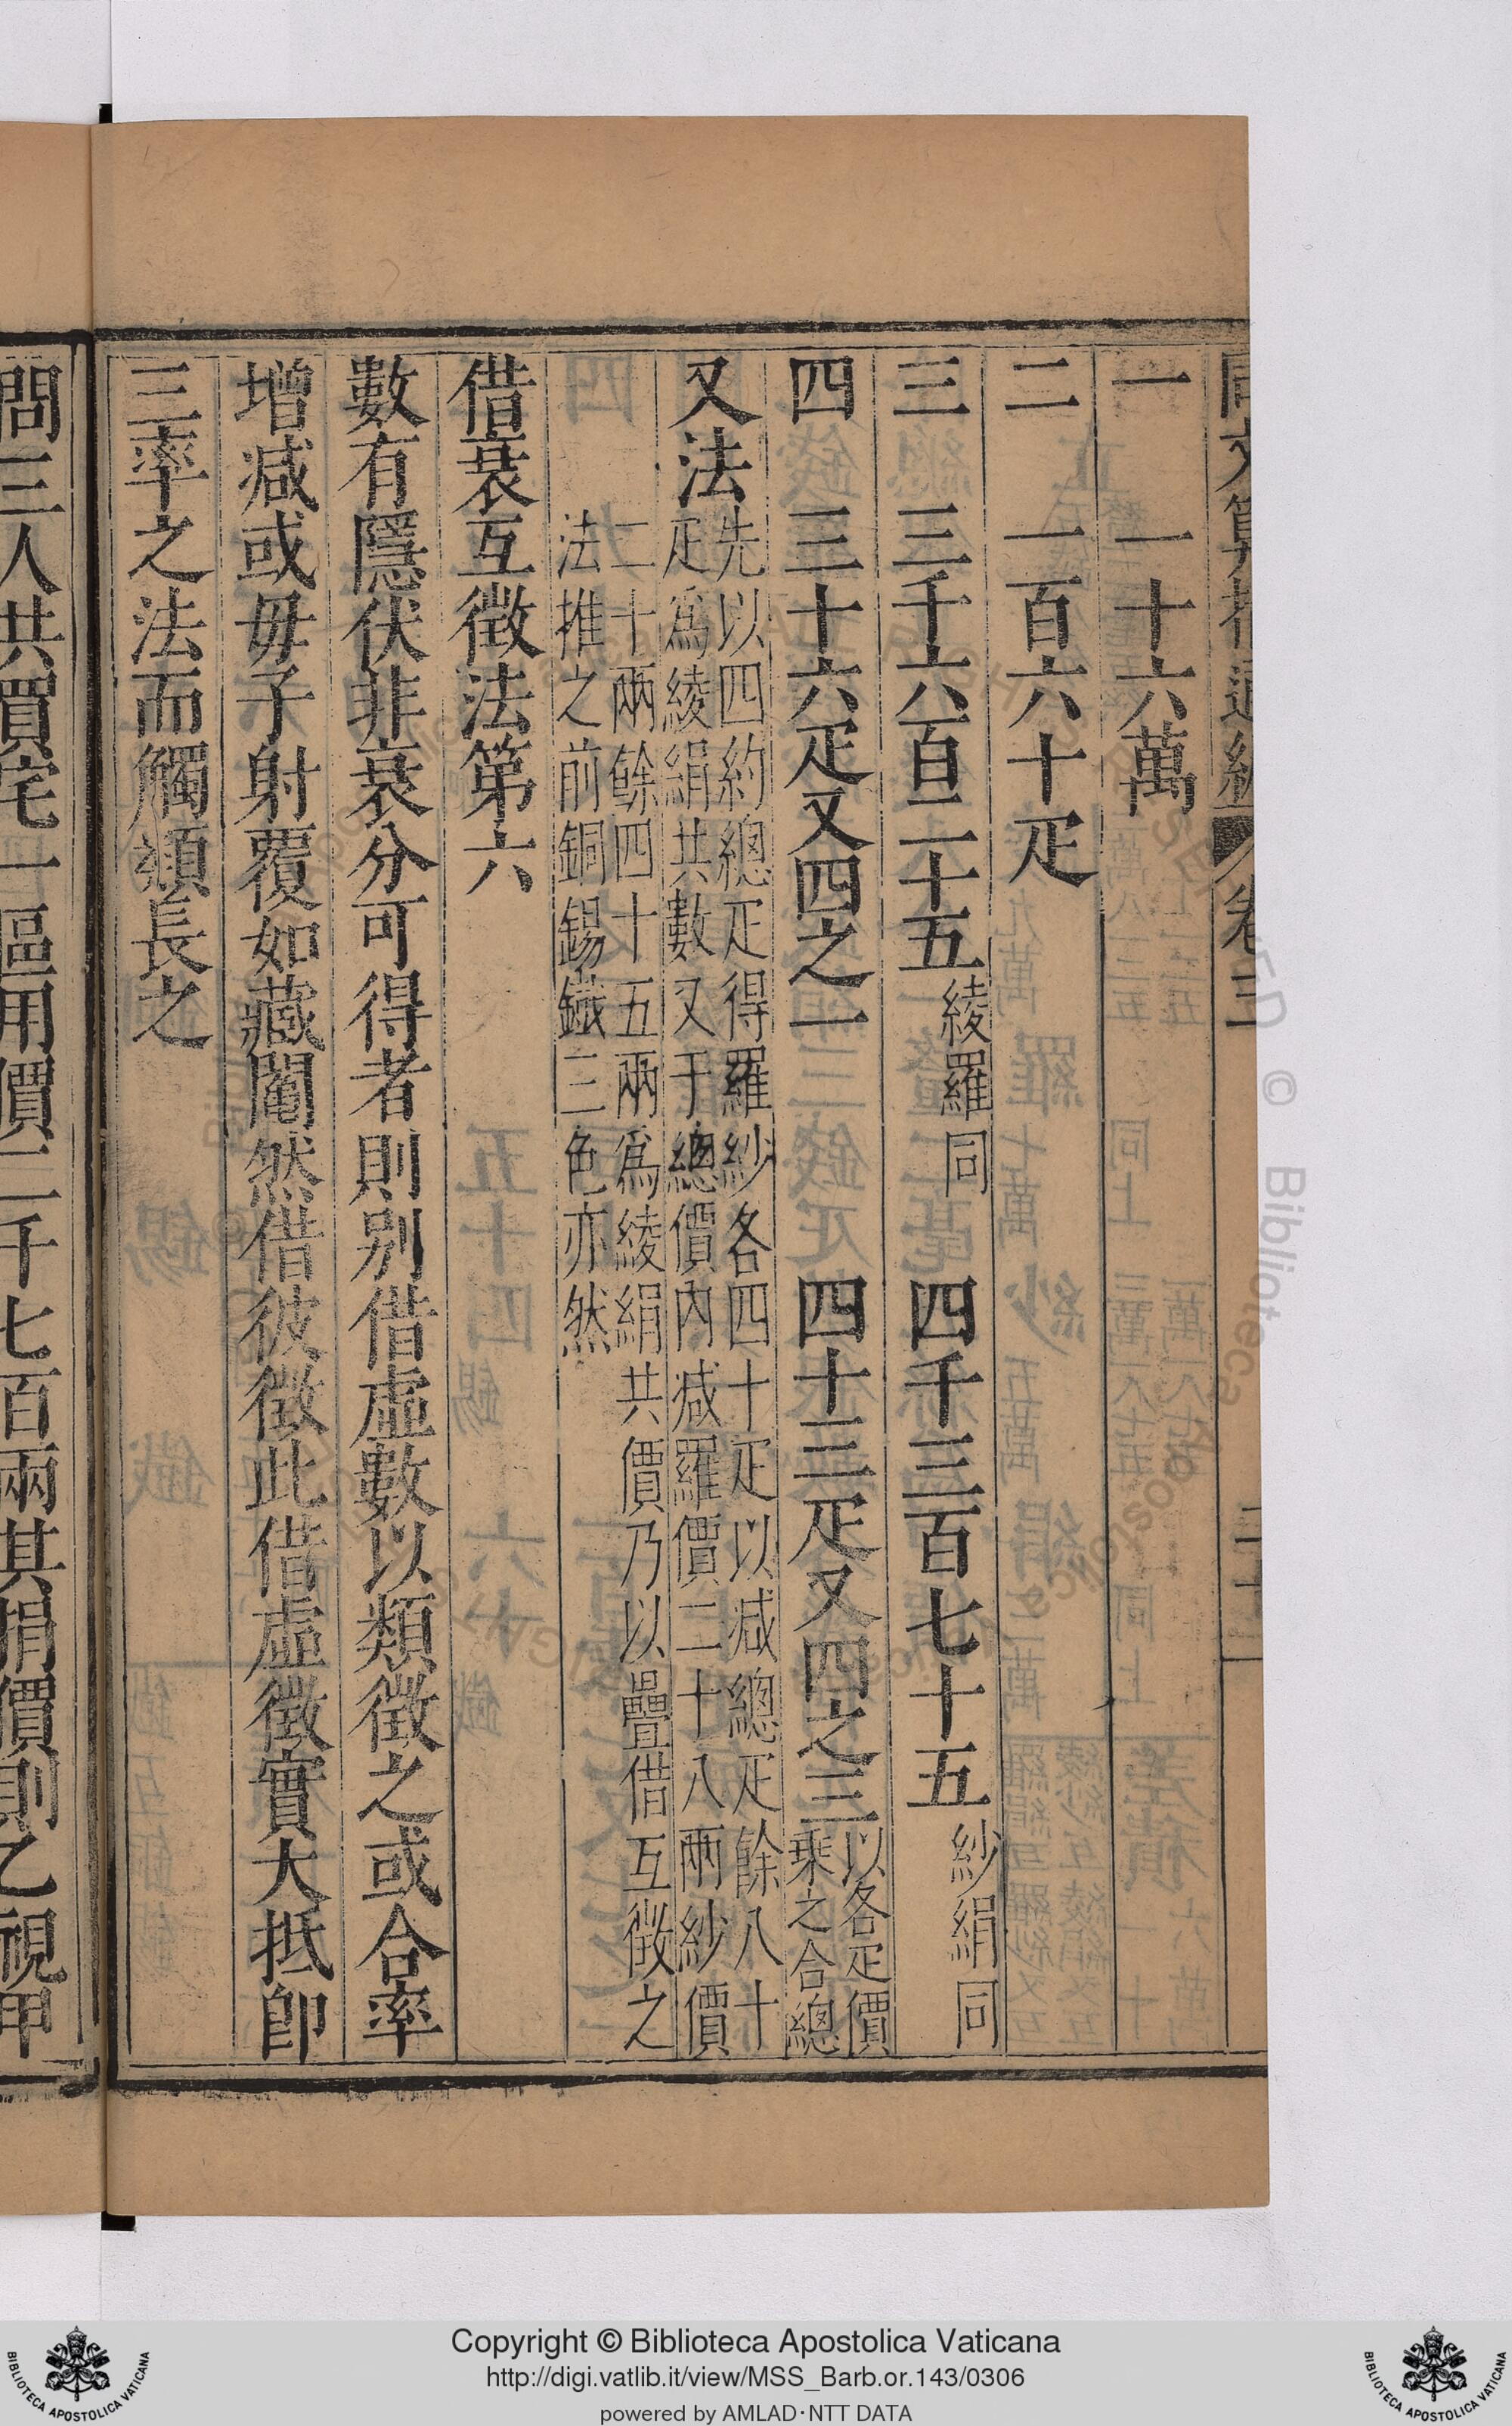 同文算指通編 卷三
一 一十六萬
二 一百六十疋
三 三千六百二十五 綾羅同 四千三百七十五 紗絹同
四 三十六疋又四之一 四十三疋又四之三 以各疋價
乘之合總
又法 先以四約總疋得羅紗各四十疋以減總疋餘八十
疋爲綾絹共數又于總價內減羅價二十八兩紗價
二十兩餘四十五兩爲綾絹共價乃以疊借互徵之
法推之前銅錫鐵三色亦然
借衰互徵法第六
數有隱伏非衰分可得者則別借虛數以類徵之或合率
增減或毋子射覆如藏鬮然借彼徵此借虛徵實大抵卽
三率之法而觸類長之
問三人共買宅一區用價二千七百兩其捐價則乙視甲
Copyright © Biblioteca Apostolica Vaticana
http://digi.vatlib.it/view/MSS_Barb.or.143/0306
powered by AMLAD·NTT DATA
BIBLIOTECA APOSTOLICA VATICANA
BIBLIOTECA APOSTOLICA VATICANA